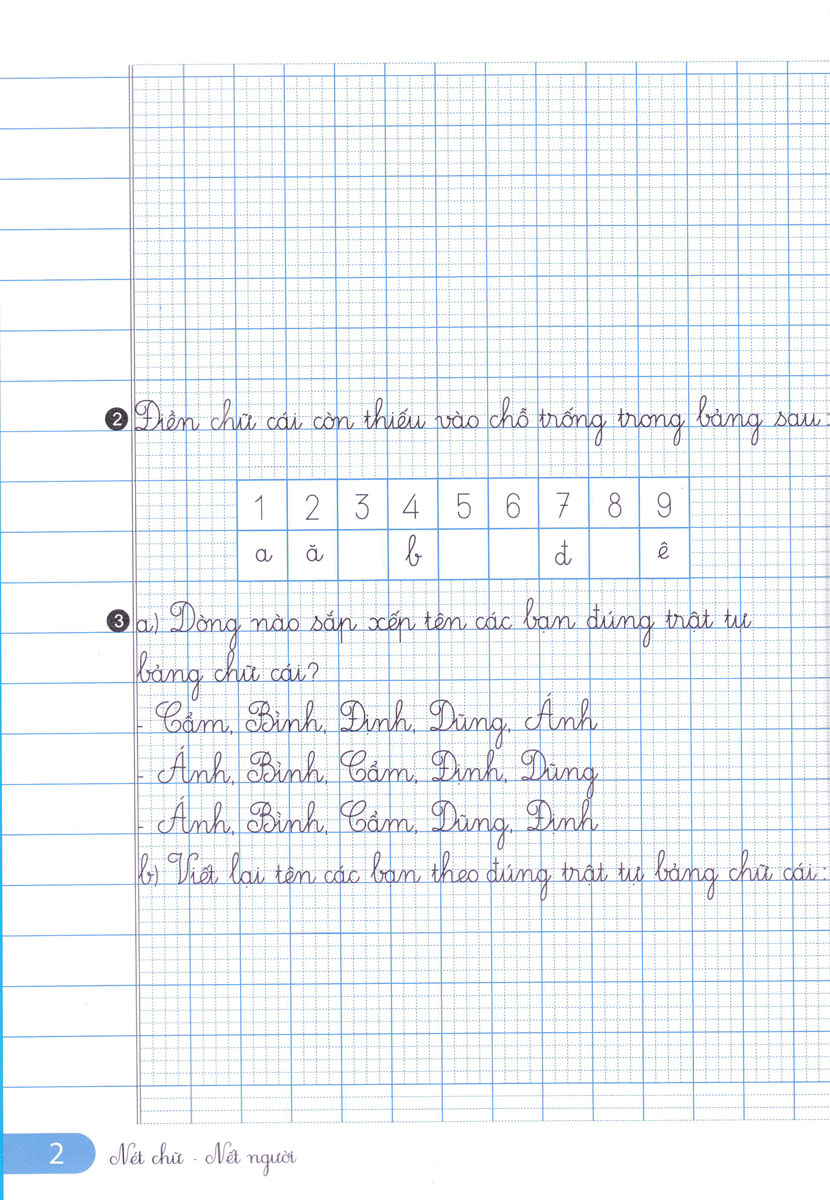 2 Điền chữ cái còn thiếu vào chỗ trống trong bảng sau:
1 2 3 4 5 6 7 8 9
a ă b đ ê
3 a) Dòng nào sắp xếp tên các bạn đúng trật tự
bảng chữ cái?
- Cẩm, Bình, Định, Dũng, Ánh
- Ánh, Bình, Cẩm, Định, Dũng
- Ánh, Bình, Cẩm, Dũng, Định
b) Viết lại tên các bạn theo đúng trật tự bảng chữ cái:
2 Nét chữ - Nết người